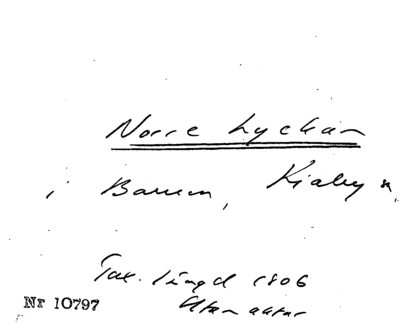 Norre Lyckan
i Barum, Kiaby sn,
Tax. längd 1806
Utan aktur
Nr 10797